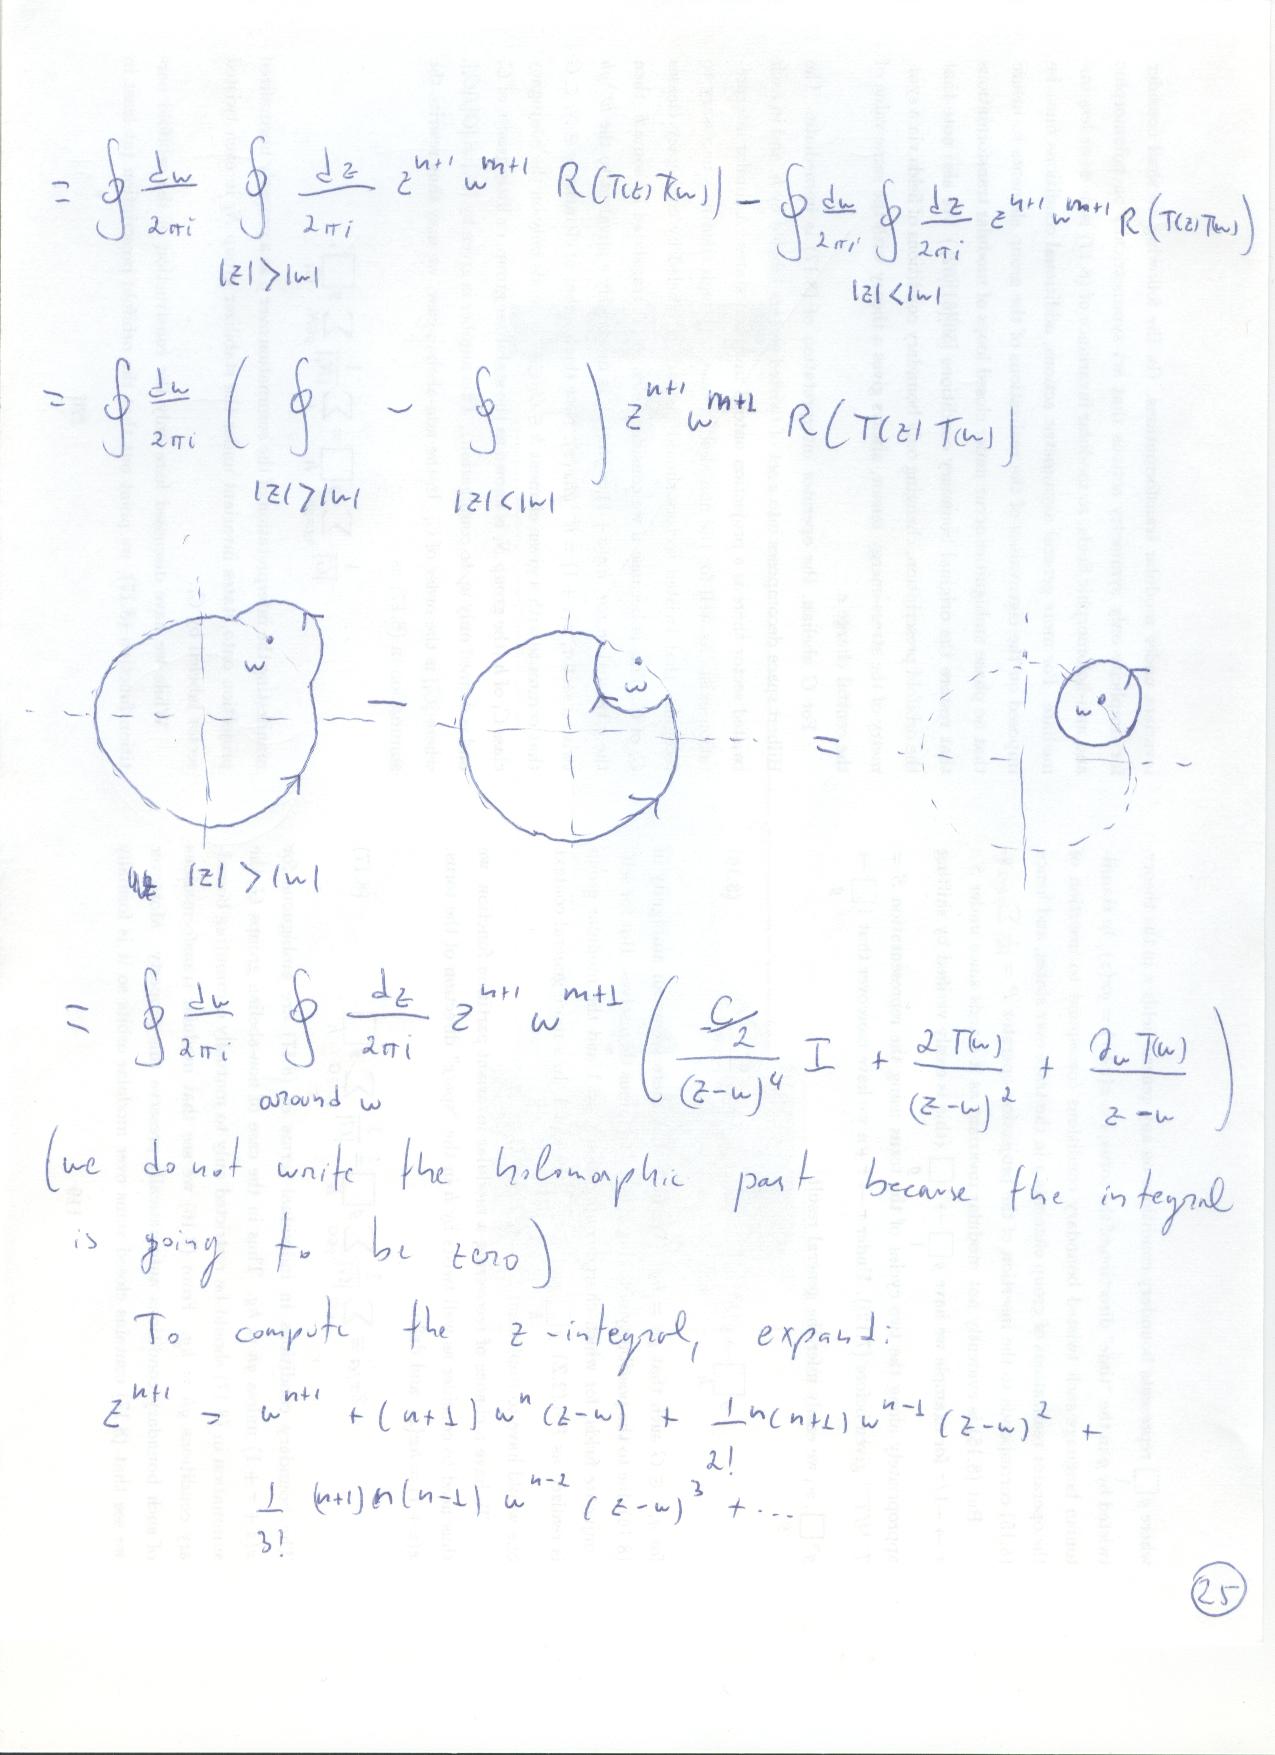 = ∮ dw/2πi ∮_{|z|>|w|} dz/2πi z^{n+1} w^{m+1} R(T(z)T(w)) − ∮ dw/2πi ∮_{|z|<|w|} dz/2πi z^{n+1} w^{m+1} R(T(z)T(w))
= ∮ dw/2πi ( ∮_{|z|>|w|} − ∮_{|z|<|w|} ) z^{n+1} w^{m+1} R(T(z)T(w))
w − w = w
|z|>|w|
= ∮ dw/2πi ∮_{around w} dz/2πi z^{n+1} w^{m+1} ( (c/2)/(z−w)^4 I + 2T(w)/(z−w)^2 + ∂_w T(w)/(z−w) )
(we do not write the holomorphic part because the integral
is going to be zero)
To compute the z-integral, expand:
z^{n+1} = w^{n+1} + (n+1) w^n (z−w) + 1/2! n(n+1) w^{n−1} (z−w)^2 +
1/3! (n+1)n(n−1) w^{n−2} (z−w)^3 + ...
25